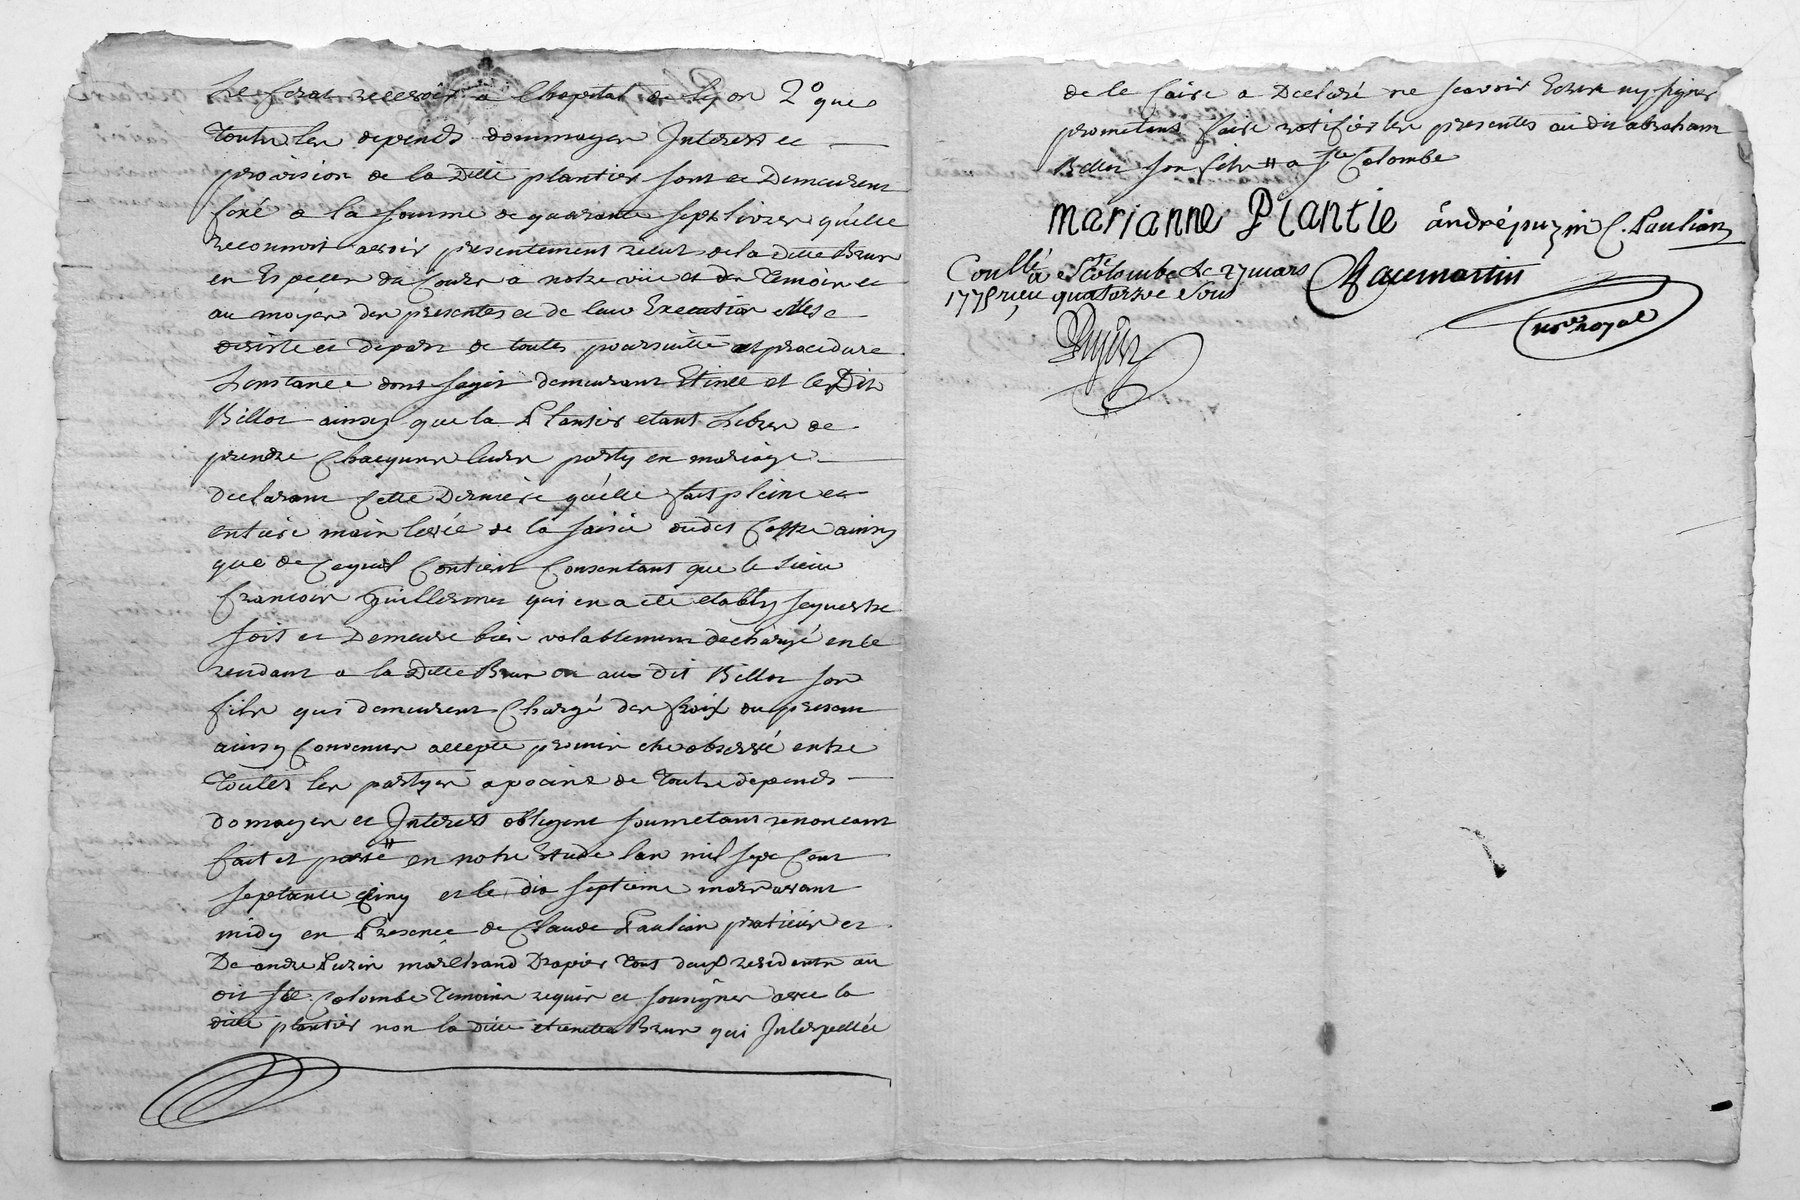 Le feras recevoir a lhopital de Lyon 2° que
toutes les depends dommages Interest et
provision de la Ditte plantier sont et Demeurent
fixé a la somme de quarante sept livres qu'elle
reconnoit avoir presentement recue de la ditte Brun
en Especes du Cours a notre vüe et des Temoins et
au moyen des presentes et de leur Execution elles se
desiste et depart de toutes poursuitte et procedure
Linstance dont sagit demeurant Etinte et les Dits
Billot ainsy que la Plantier etant Libres de
prendre Chacquns leurs party en mariage
declarant Cette Derniere qu'elle fait pleine et
entiere main levée de la saisie dudit Coffre ainsy
que de Ce quil Contient Consentant que le sieur
francois Guillermet qui en a eté etably sequestre
soit et Demeure bien valablement dechargé en le
rendant a la Ditte Brun ou au dit Billot son
fils qui demeurent Chargé des fraix du present
ainsy Convenus accepte promis etre observé entre
toutes les partyes a peine de toutte depends
domages et Interest obligent soumetant renoncant
fait et passé # en notre Etude lan mil sept Cent
septante Cinq et le dix septieme mars avant
midy en Presence de Claude Paulian praticien et
De andre Puzin marchand Drapier tous deux residents au
dit Ste Colombe Temoins requis et sousignes avec la
ditte plantier non la ditte Brun qui Interpellée
de le faire a Declaré ne scavoir Ecrire ny signer
prometant faire ratifier les presentes au dit abraham
Billot son fils # a Ste Colombe
marianne Plantie andré puzin C. Paulian
Conllé a Ste Colombe Le 27 mars
1775 reçu quatorze sous
martin
nore royal